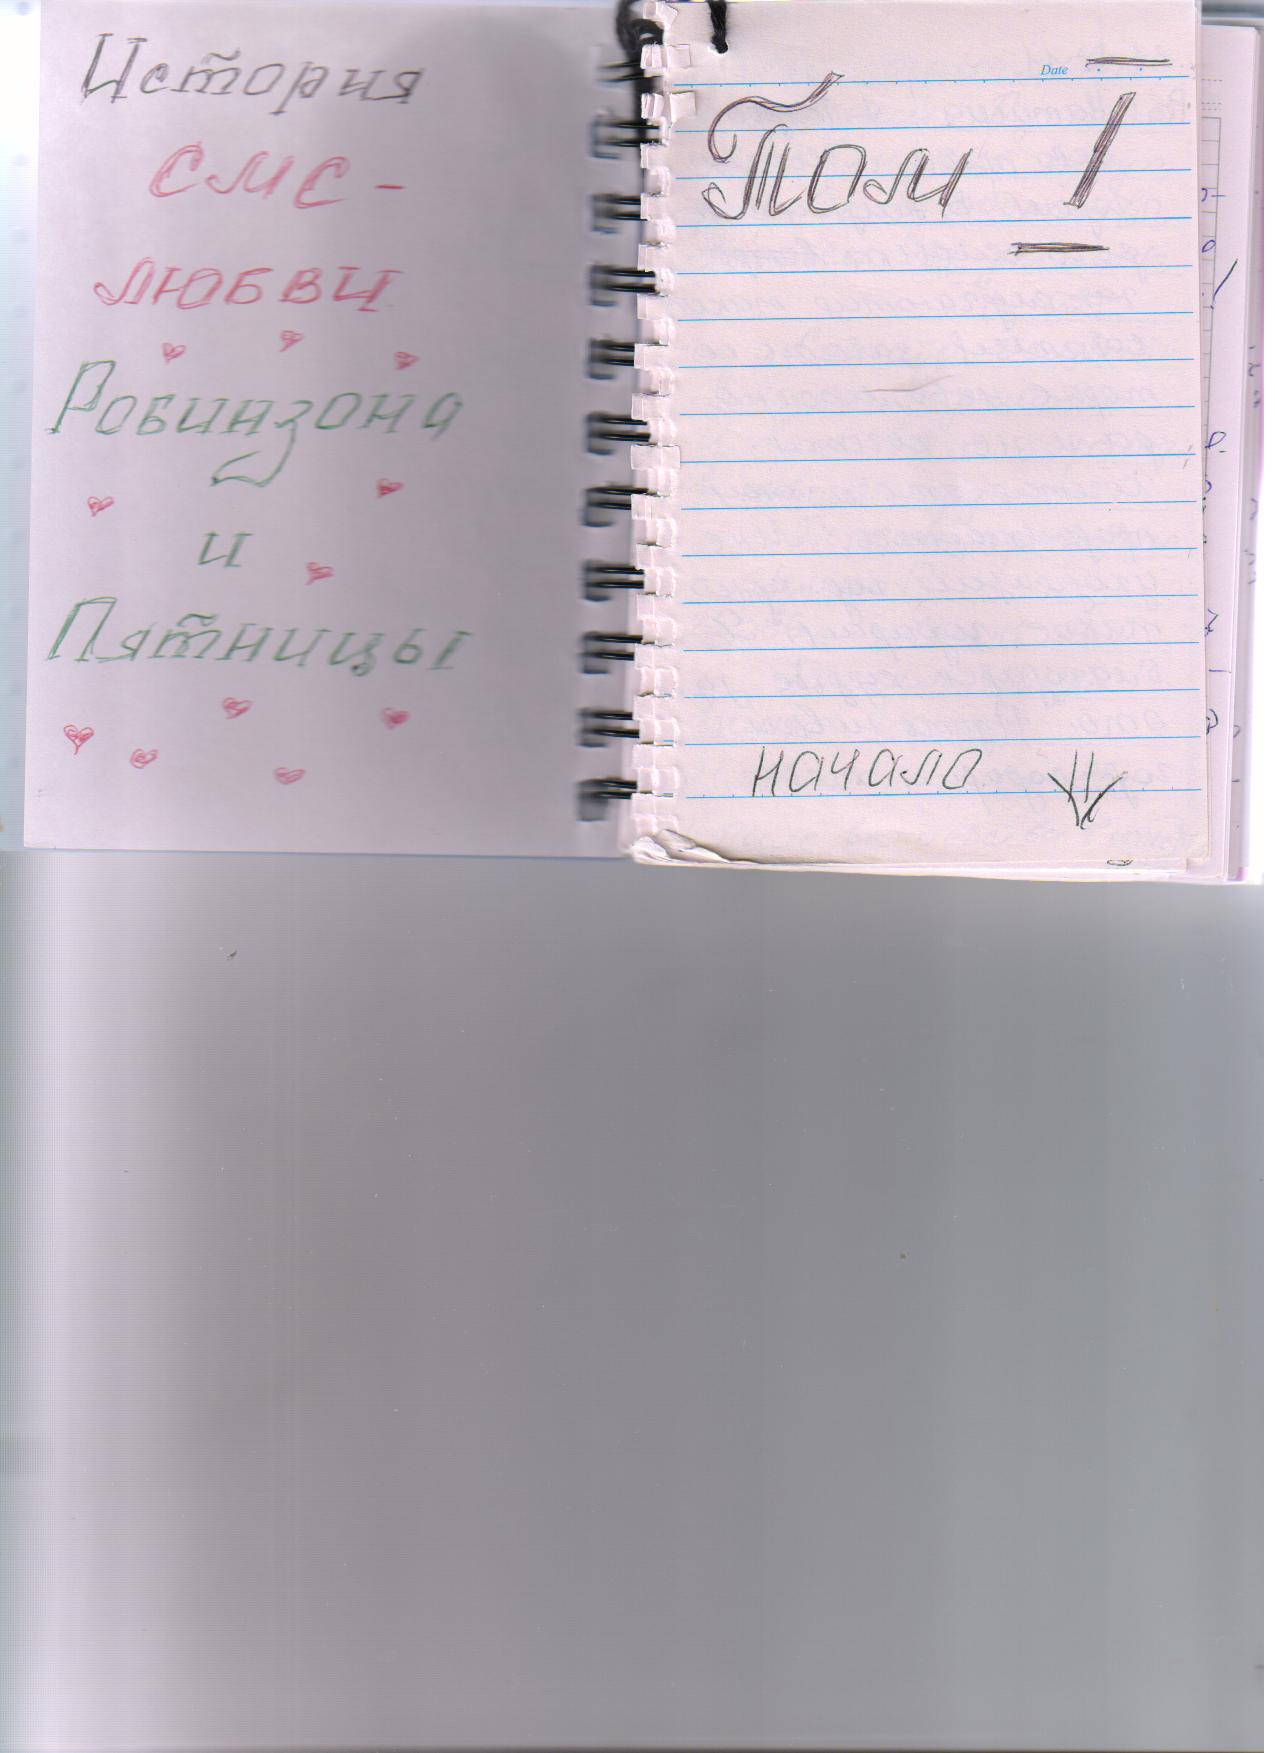 История
СМС -
любви
Робинзона
и
Пятницы
Date
Том I
начало